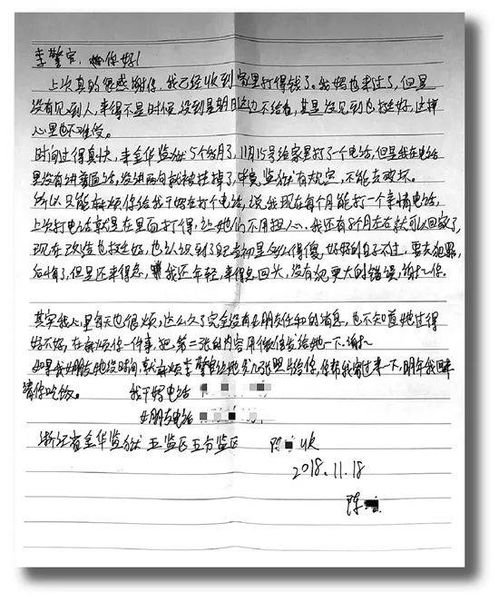 李警官，你好！
上次真的很感谢你，我已经收到家里打得钱了。我妈也来过了，但是
没有见到人，来得不是时候，没到星期日这边不给看，其是没见到也挺好，这样
心里也不难受。
时间过得真快，来金华监狱5个月了，11月15号给家里打了个电话，但是我在电话
里没有讲普通话，没讲两句就被挂掉了，监狱有规定，不能去破坏。
所以只能麻烦你给我干妈在打个电话，说我现在每个月能打一个亲情电话，
上次打电话就是在里面打得，让她们不用担心，我还有8个月左右就可以回家了，
现在改造也挺好，也认识到了自己当初是多么得傻，好好的日子不过，要去犯罪，
后悔了，但是还来得急，我还年轻，来得急回头，没有犯更大的错误，谢谢你。
其实我心里每天也很烦，这么久了完全没有女朋友任和的消息，也不知道她过得
好不好，在麻烦你一件事，把第二张的内容用微信发给她一下，谢谢
如果我女朋友她没时间，就麻烦李警官让她发几张照片给你，你帮我寄过来一下，明年我回来
请你吃饭。
我干妈电话
女朋友电话
浙江省金华监狱 五监区五分监区 陈 收
2018.11.18
陈